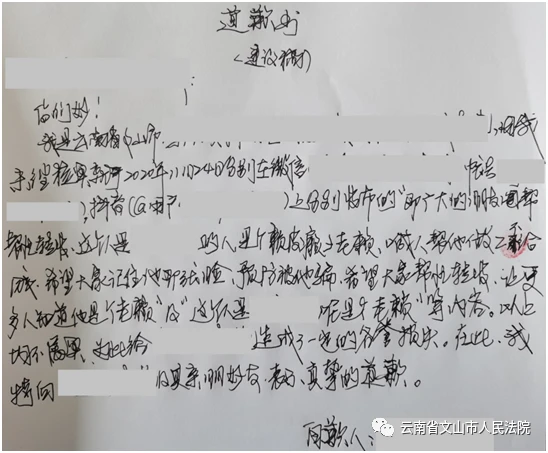 道歉书
(建议稿)
你们好!
我是云南省文山市 ),因我
未经核实与2020年11月24日分别在微信
),抖音(@用户 )上分别发布的“即广大的朋友圈帮
帮忙转发,这个是 的人是个赖皮 老赖,喊人帮他做工不合
,希望大家记住他那张脸,预防被他骗,希望大家帮忙转发,让更
多人知道他是个老赖”及“这个是 呢是个老赖”等内容。以上
均不属实,如此给 造成了一定的名誉损失。在此,我
特向 及其亲朋好友表示真挚的道歉。
道歉人:
云南省文山市人民法院